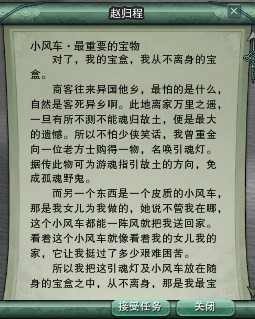 赵归程
小风车·最重要的宝物
对了，我的宝盒，我从不离身的宝
盒。
商客往来异国他乡，最怕的是什么，
自然是客死异乡啊。此地离家万里之遥，
一旦有所不测不能魂归故土，便是最大
的遗憾。所以不怕少侠笑话，我曾重金
向一位老方士购得一物，名唤引魂灯。
据传此物可为游魂指引故土的方向，免
成孤魂野鬼。
而另一个东西是一个皮质的小风车，
那是我女儿为我做的，她说不管我在哪，
这个小风车都能一阵风就把我送回家。
看着这个小风车就像看着我的女儿我的
家，它让我挺过了多少艰难困苦。
所以我把这引魂灯及小风车放在随
身的宝盒之中，从不离身，那是我最宝
接受任务
关闭